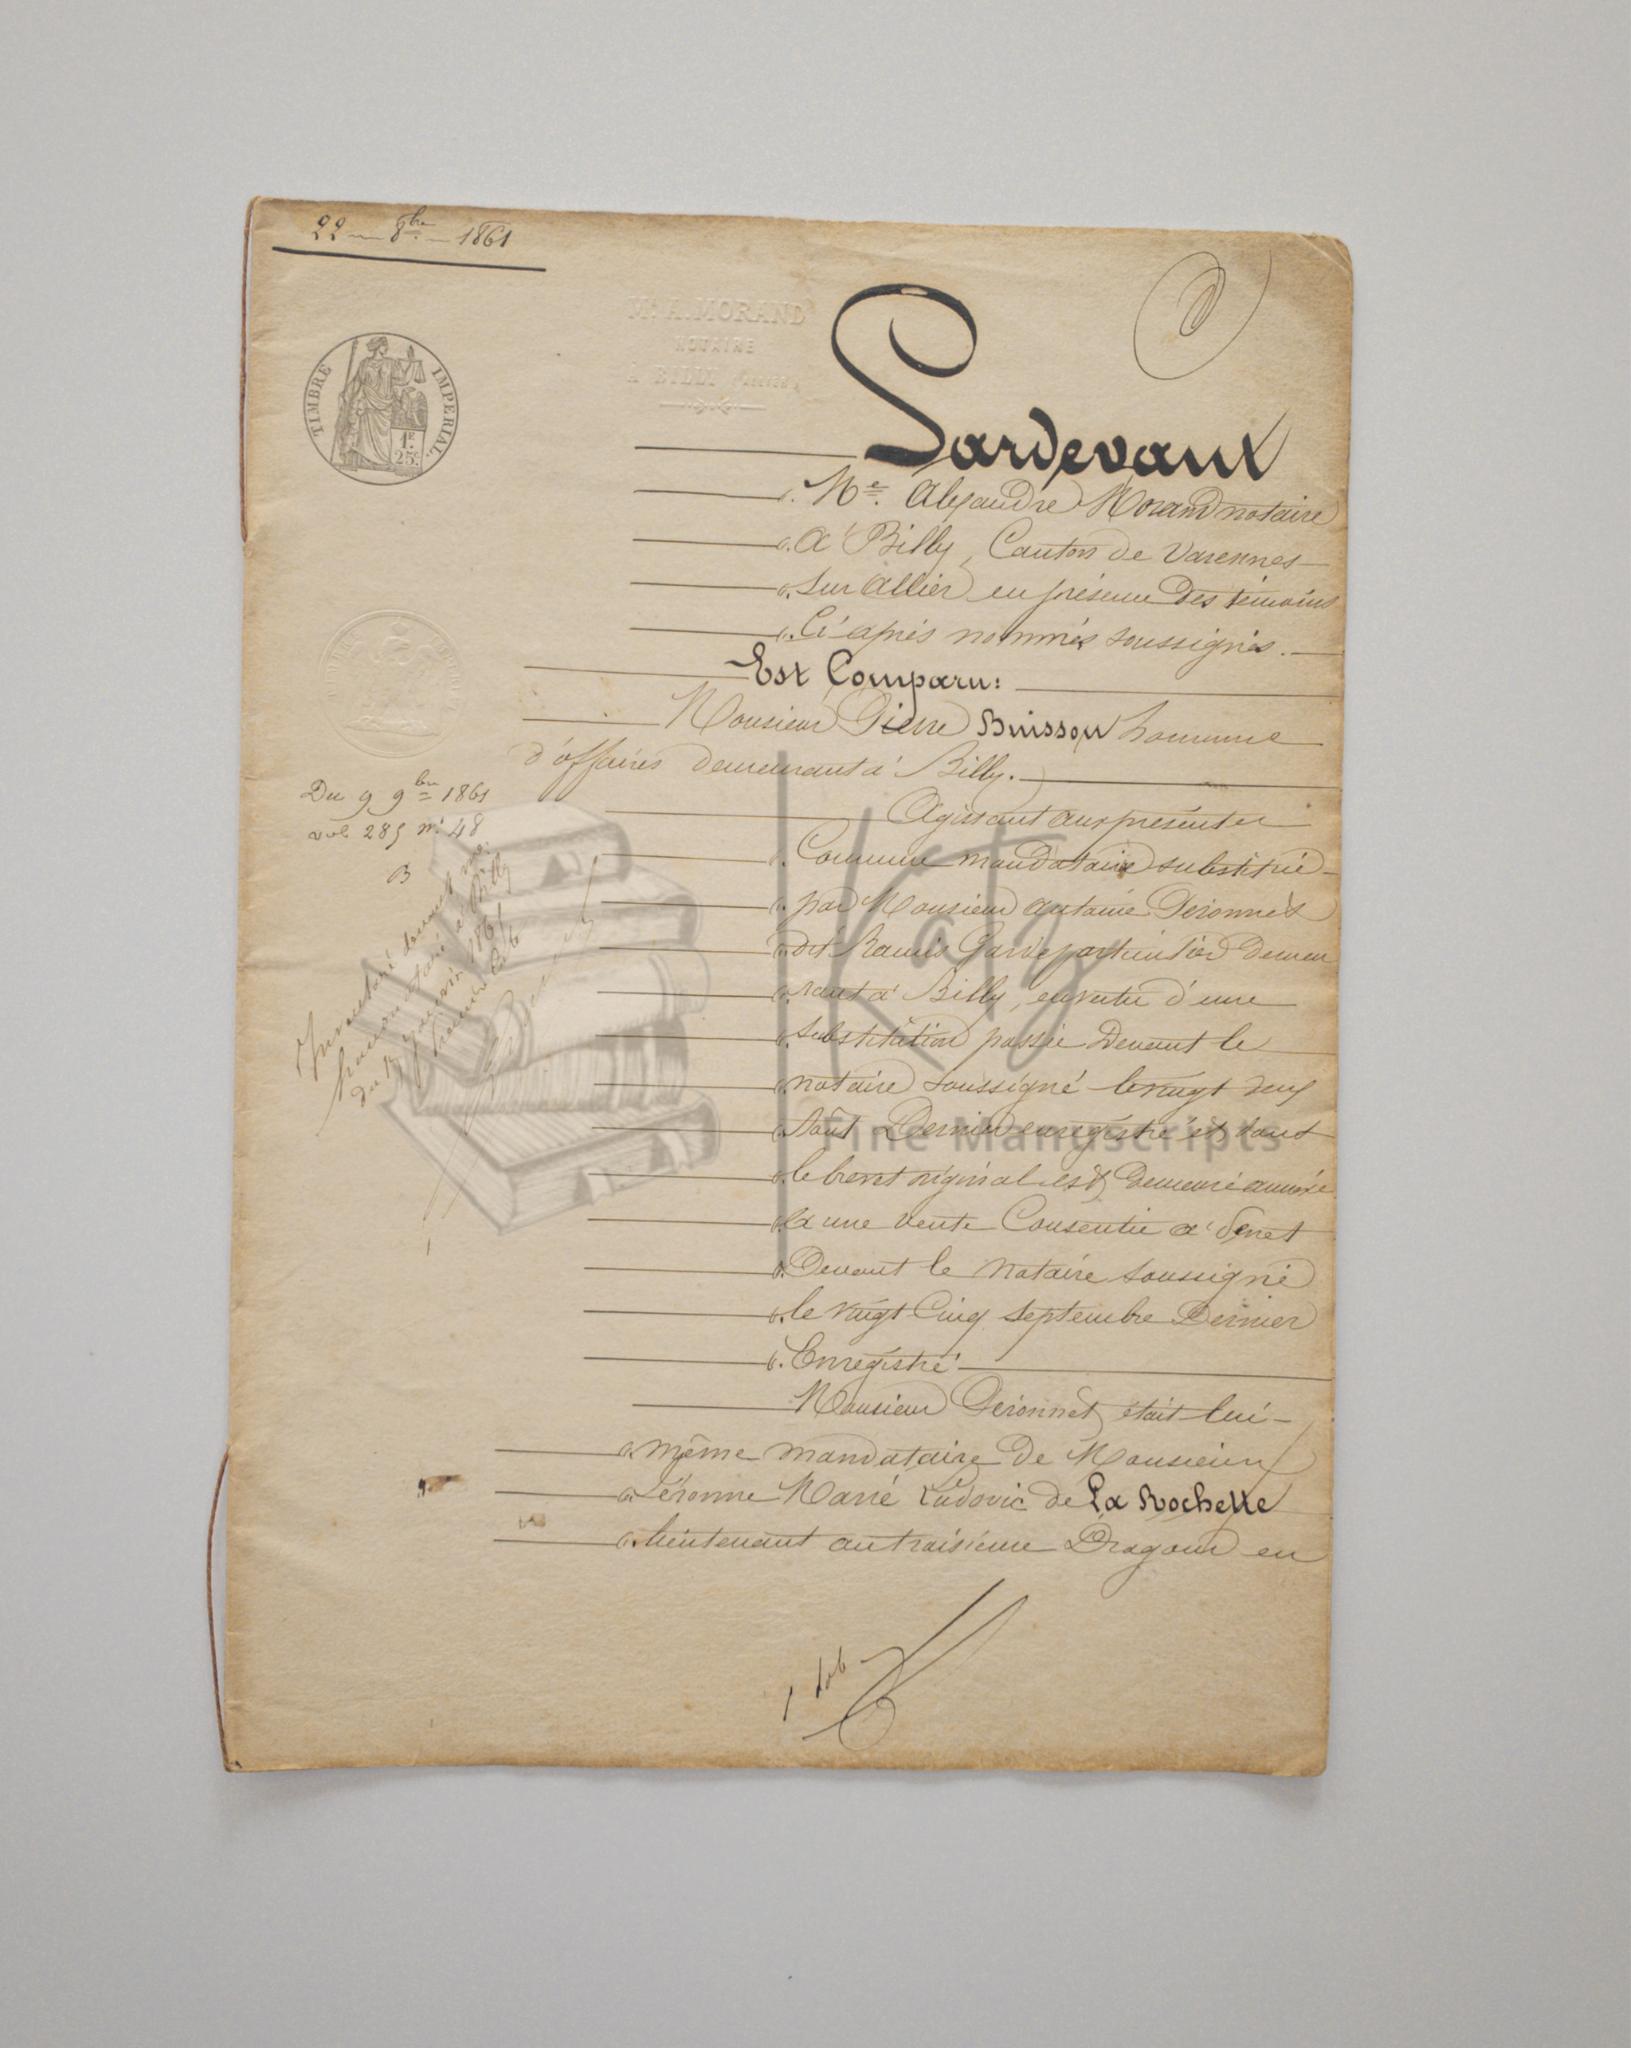 22 — 8bre — 1861
Me A. MORAND
NOTAIRE
A BILLY (ALLIER)
TIMBRE IMPERIAL.
1F.
25c.
Pardevant
Me. Alexandre Morand notaire
à Billy, Canton de Varennes
sur allier en présence des témoins
Ci après nommés soussignés.
Est Comparu:
Monsieur Pierre Buisson homme
d'affaires demeurant à Billy.
Agissant aux présentes
Du 9 9bre 1861
vol 285 n° 48
B
Comme mandataire substitué
par Monsieur antoine Peronnet
dit Garde particulier demeu
rant à Billy, en vertu d'une
substitution passée Devant le
notaire soussigné le vingt deux
Août Dernier enregistré et dont
le brevet original est demeuré annexé
a une vente Consentie a
Devant le notaire soussigné
le vingt Cinq septembre Dernier
Enregistré
Monsieur Peronnet était lui-
même mandataire de Monsieur
Marie Ludovic de La Rochette
lieutenant au troisième Dragons en
Katz
Fine Manuscripts